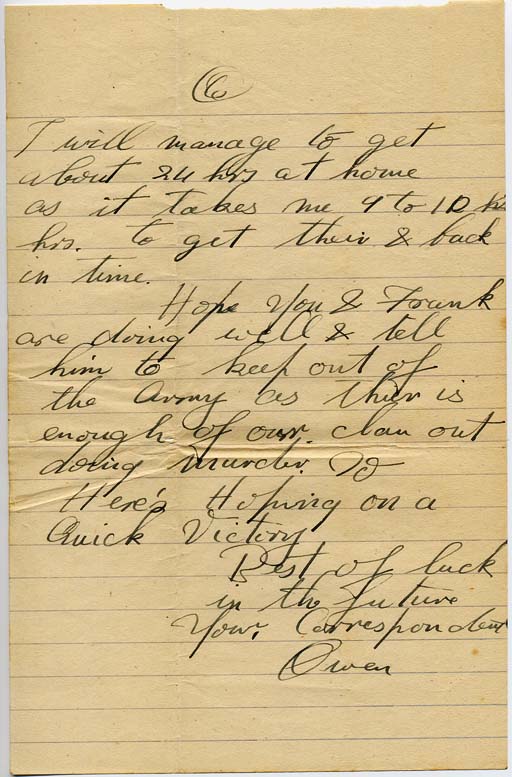 6
I will manage to get
about 24 hrs at home
as it takes me 9 to 10
hrs. to get their & back
in time.
Hope You & Frank
are doing well & tell
him to keep out of
the Army as their is
enough of our clan out
doing murder.
Here's Hoping on a
Quick Victory
Best of luck
in the future
Your Correspondent
Owen